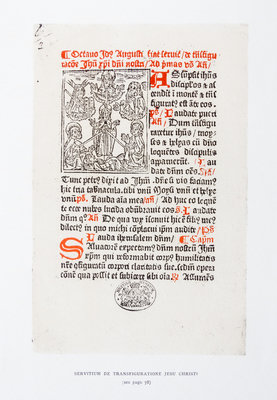 Octavo Idꝰ Augusti fiat seruiciū de trāsfigu
ratiōe Jhū xp̄i dn̄i nostri Ad pͥmas vꝰ Añ
Assūpsit ihūs
discipl'os & as
cendit ī montē & trāsfigurat
figuratꝰ est ante eos.
Ps. Laudate pueri
Añ Dum trāsfigu
raretur ihūs moy
ses & helyas cū dn̄o
loquētes discipulis
apparuerūt. Ps Lau
date dn̄m oēs.
Tunc petrꝰ dixit ad Jhūm. dn̄e si vis faciamꝰ
hic tria tabnacula. tibi vnū Moysi vnū et helye
vnū Ps. Lauda aīa mea Añ Adhuc eo loquē
te ecce nubes lucida obūbrauit eos Ps Laudate
dn̄m qꝫ Añ De qua vox īsonuit hic ē filiꝰ meꝰ
dilectꝰ in quo michi cōplacui ipm̄ audite Ps
Lauda iherusalem dn̄m Capm̄
Saluatorē expectamꝰ dn̄m nostrū Jhūm
xp̄m qui reformabit corpꝰ humilitatis
nr̄e cōfiguratū corpori claritatis sue. scdm̄ opera
cōnē qua possit et subicere sibi oīa & Assumēs
SERVITIUM DE TRANSFIGURATIONE JESU CHRISTI
(see page 78)